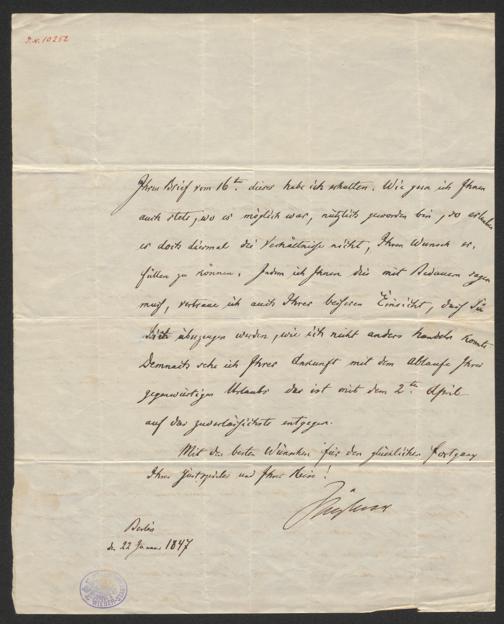 I.N. 10252
Ihren Brief vom 16ten dieses habe ich erhalten. Wie gern ich Ihnen
auch stets, wo es möglich war, nützlich geworden bin, so erlauben
es doch diesmal die Verhältnisse nicht, Ihren Wunsch er-
füllen zu können. Indem ich Ihnen dies mit Bedauern sagen
muß, vertraue ich auch Ihrer besseren Einsicht, daß Sie
überzeugen werden, wie ich nicht anders handeln konnte.
Demnach sehe ich Ihrer Ankunft mit dem Ablaufe Ihres
gegenwärtigen Urlaubs das ist mit dem 2ten April
auf das zuverlässigste entgegen.
Mit den besten Wünschen für den glücklichen Fortgang
Ihres Gastspieles und Ihrer Reise!
Berlin
den 22 Januar 1847